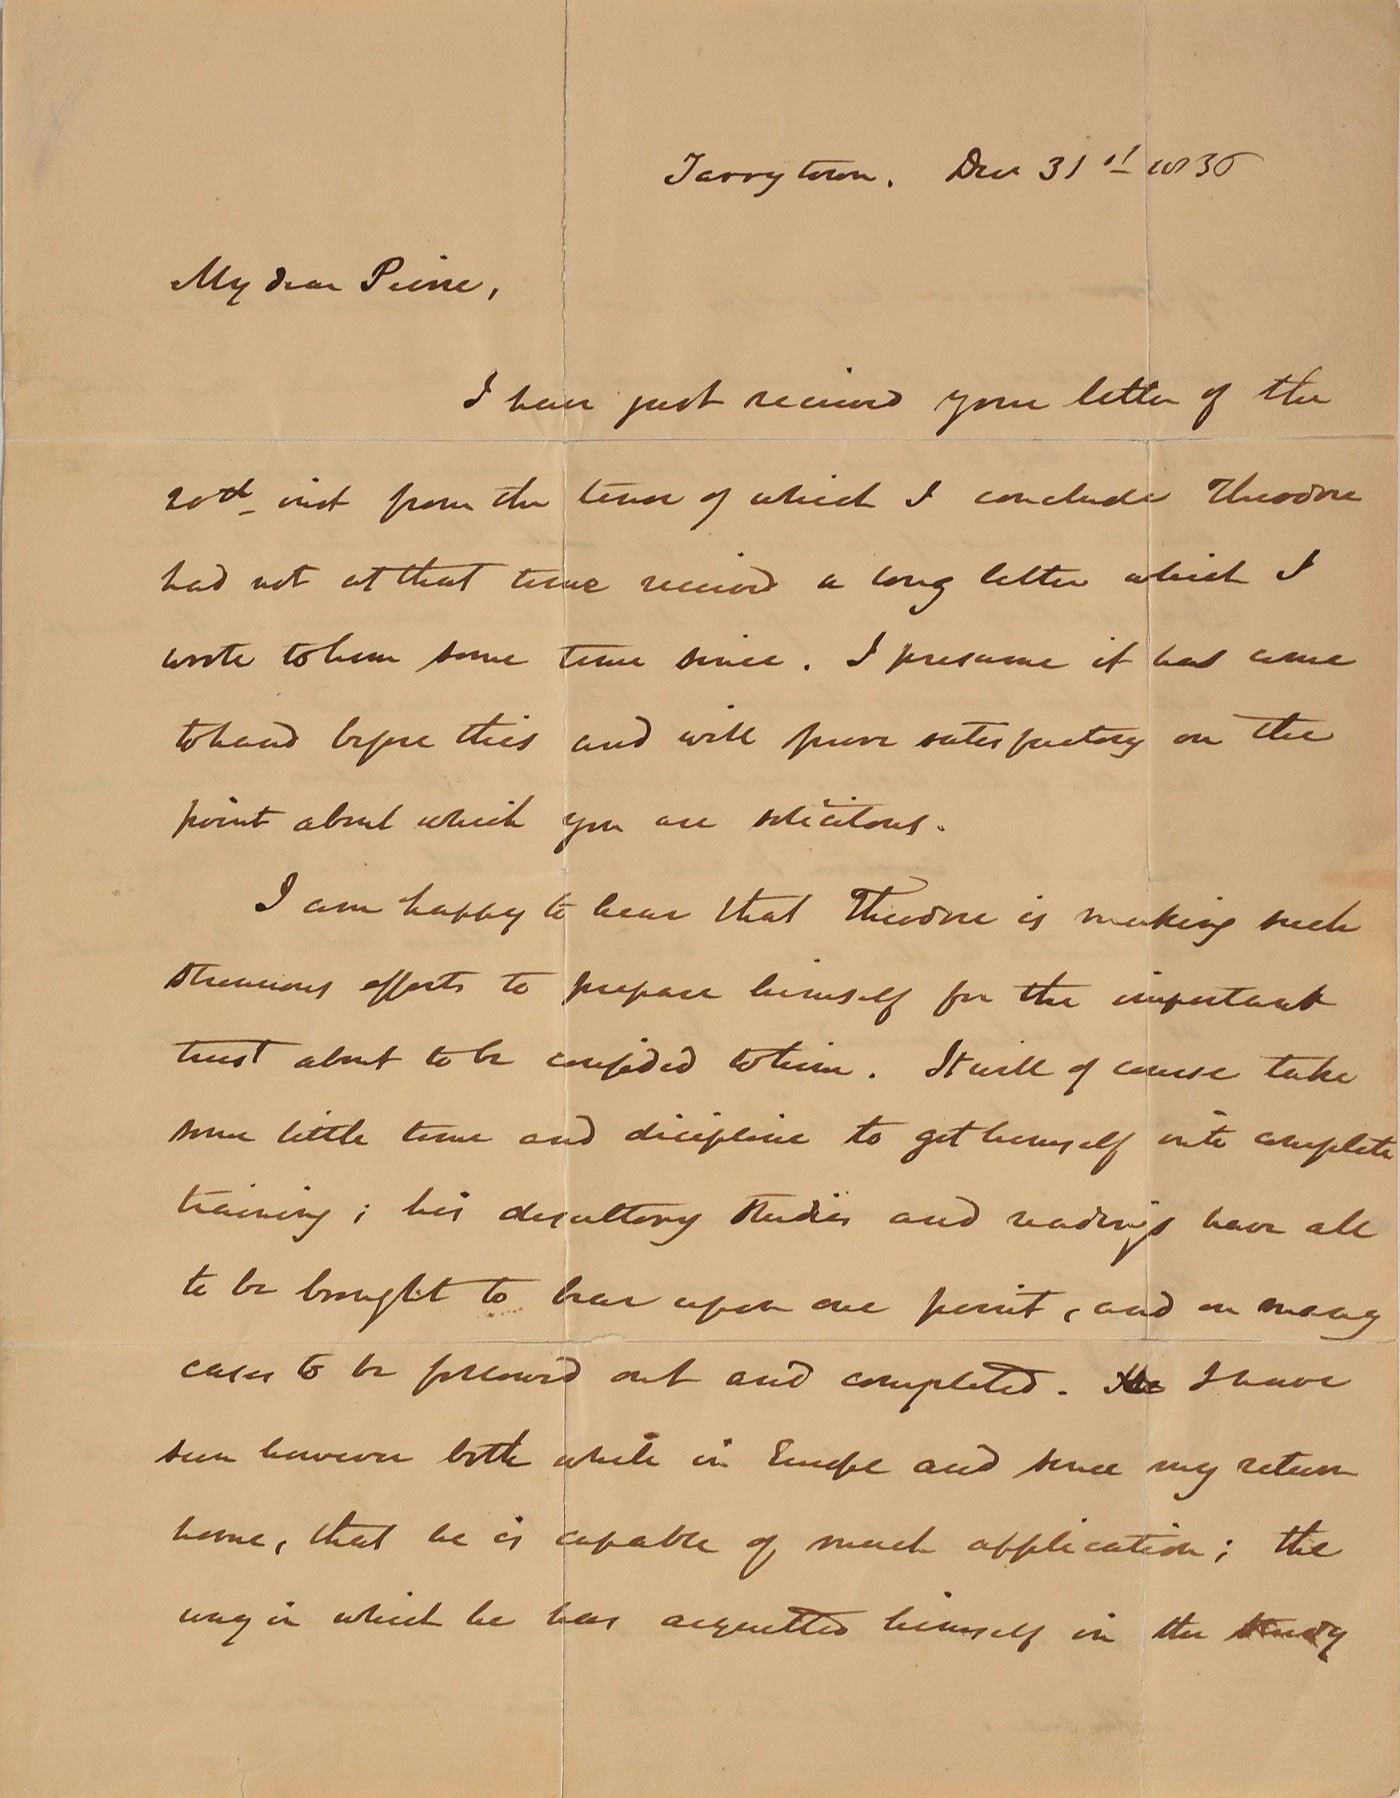 Tarrytown. Dec 31st 1836
My dear Pierre,
I have just received your letter of the
20th inst from the tenor of which I conclude Theodore
had not at that time received a long letter which I
wrote to him some time since. I presume it has come
to hand before this and will prove satisfactory on the
point about which you are solicitous.
I am happy to hear that Theodore is making such
strenuous efforts to prepare himself for the important
trust about to be confided to him. It will of course take
some little time and discipline to get himself into complete
training; his desultory studies and readings have all
to be brought to bear upon one point, and in many
cases to be followed out and completed. I have
seen however both while in Europe and since my return
home, that he is capable of much application; the
way in which he has acquitted himself in the study